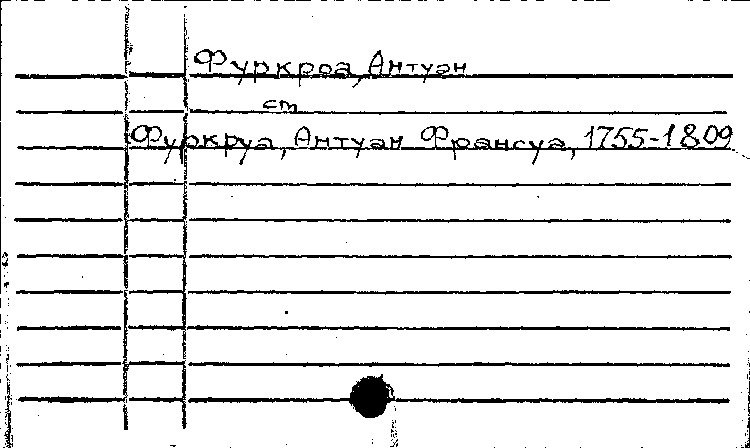 Фуркроа, Антуан
ст
Фуркруа, Антуан Франсуа, 1755-1809